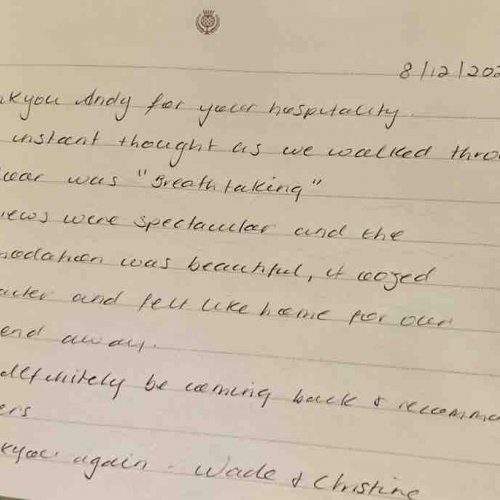 8/12/202
kyou Andy for your hospitality.
instant thought as we walked thro
was "Breathtaking"
iews were spectacular and the
modation was beautiful, it oozed
acter and felt like home for our
end away.
definitely be coming back & recomm
ers
kyou again - Wade & Christine